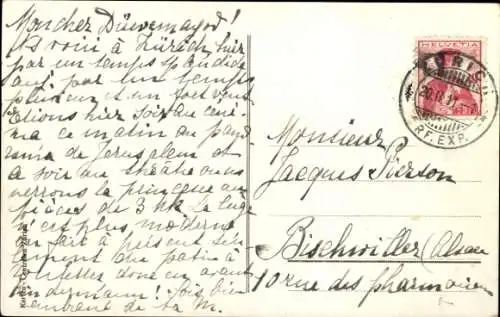 Mon cher Duvemayod!
à Zürich hier
par un temps splendide
auj. par un temps
pluvieux et un fort vent
étions hier soir au ciné-
ma ce matin au pano-
rama de Jerusalem et
à soir au théâtre ou nous
verrons la princesse au
pièces de 3 La luge
n'est plus moderne
on fait à présent seu-
lement du patin à
roulettes donc en avant
bien
embrassé de ta M.
HELVETIA
ZÜRICH
BRF. EXP.
Monsieur
Jacques Pierson
Bischwiller (Alsace
10 rue des pharmacien